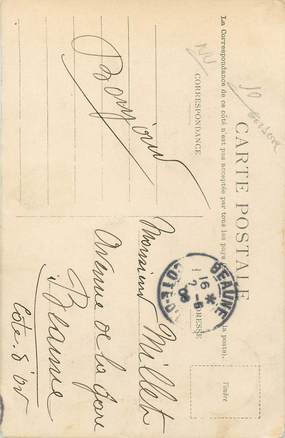 CARTE POSTALE
La Correspondance de ce côté n'est pas acceptée par tous les pays
la poste).
CORRESPONDANCE
ADRESSE
Bonjour
Monsieur Millet
Avenue de la Gare
Beaune
Côte d'or
BEAUNE
16
2-6
08
COTE-D'OR
Timbre